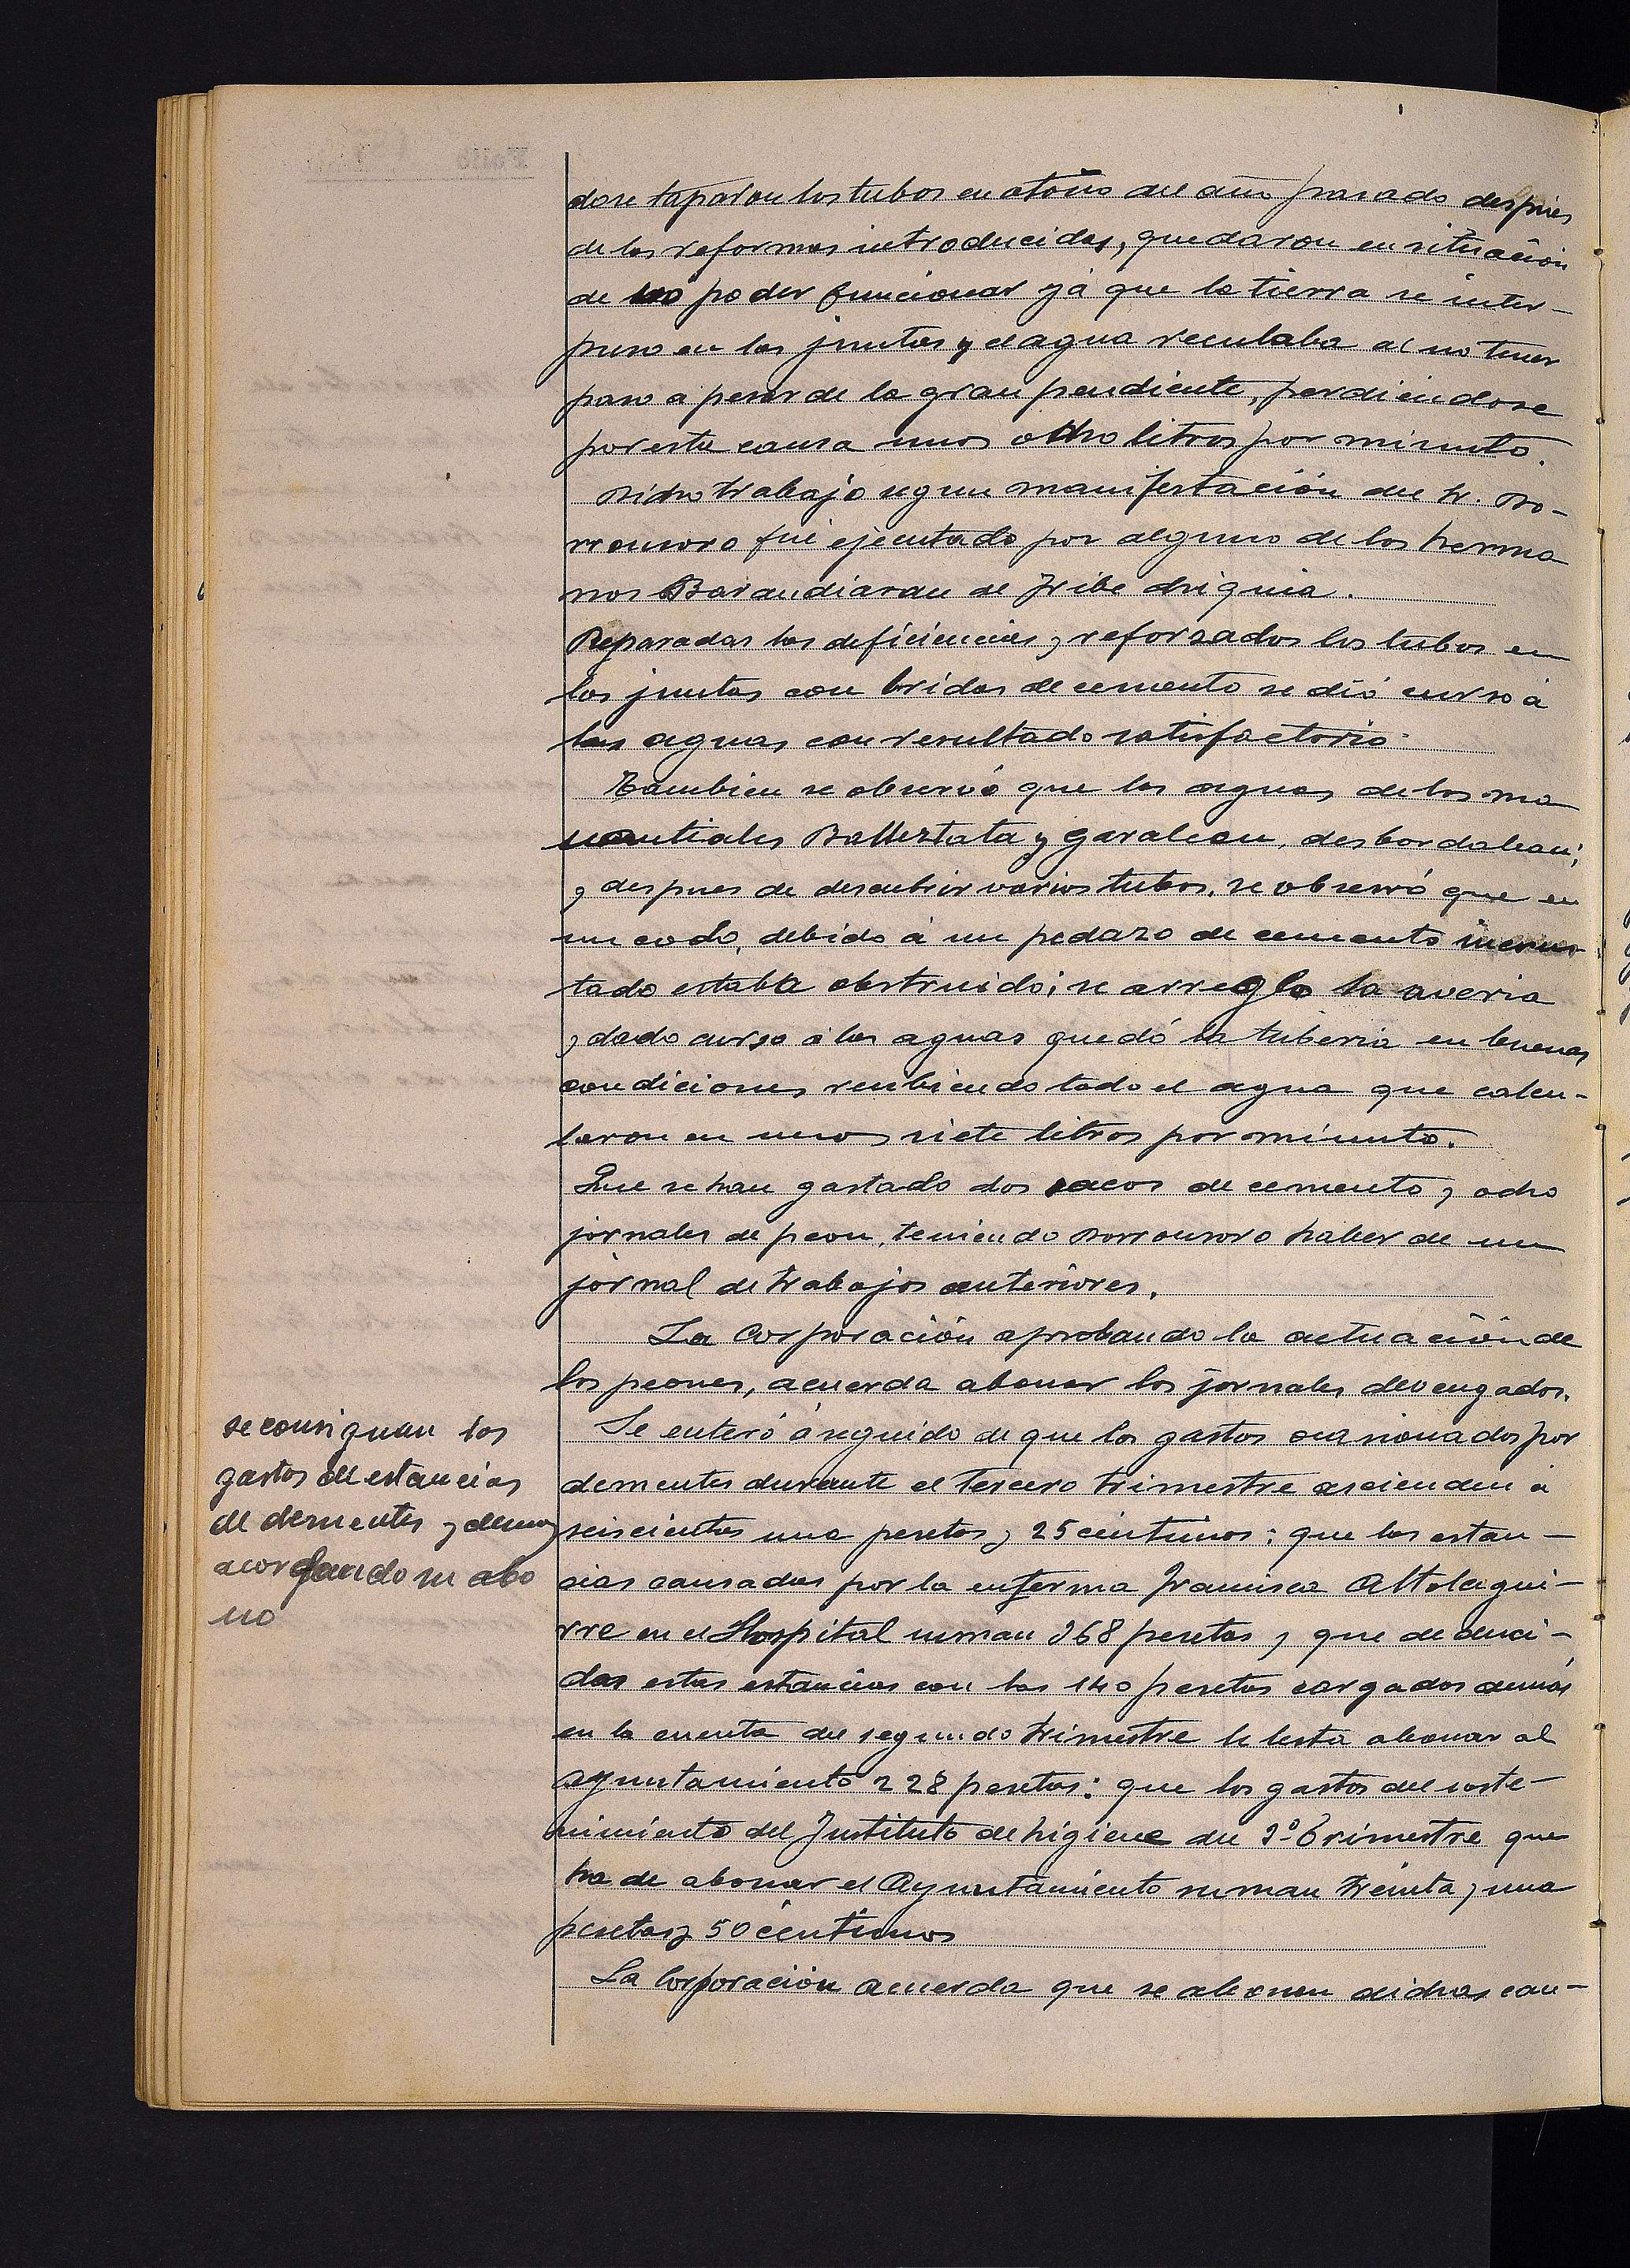 do se taparon los tubos en otoño del año pasado después
de las reformas introducidas, quedaron en situación
de no poder funcionar yá que la tierra se inter-
puso en las juntas y el agua reculaba al no tener
paso a pesar de la gran pendiente, perdiéndose
por esta causa unos ocho litros por minuto.
Dicho trabajo segun manifestación del Sr. So-
rronsoro fué ejecutado por alguno de los herma
nos Barandiaran de Iribe
Reparadas las deficiencias y reforzados los tubos en
las juntas con bridas de cemento se dió curso á
las aguas con resultado satisfactorio.
Tambien se observó que las aguas de los ma
nantiales y Garalcau, desbordaban;
y despues de descubrir varios tubos, se observó que en
un codo, debido á un pedazo de cemento incrus
tado estaba obstruido; se arreglo la averia
y dado curso á las aguas quedó la tuberia en buenas
condiciones recibiendo todo el agua que calcu-
laron en unos siete litros por minuto.
Que se han gastado dos sacos de cemento y ocho
jornales de peon, teniendo Sorronsoro haber de un
jornal de trabajos anteriores.
La Corporación aprobando la actuación de
los peones, acuerda abonar los jornales devengados.
se consignan los
gastos de estancias
de dementes y demas
acordando su abo
no
Se enteró á seguido de que los gastos ocasionados por
dementes durante el tercero trimestre ascienden á
seiscientas una pesetas y 25 céntimos: que las estan-
cias causadas por la enferma Francisca Altolagui-
rre en el Hospital suman 368 pesetas y que deduci-
das estas estancias con las 140 pesetas cargadas demás
en la cuenta del segundo trimestre le resta abonar al
ayuntamiento 228 pesetas: que los gastos del soste-
nimiento del Instituto de higiene del 3º trimestre que
ha de abonar el Ayuntamiento suman treinta y una
pesetas y 50 céntimos
La Corporación acuerda que se abonen dichas can-